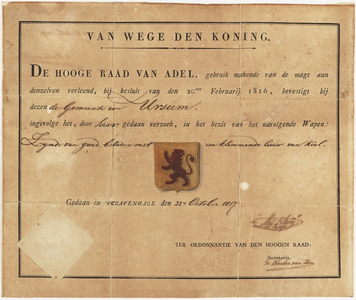 VAN WEGE DEN KONING.
DE HOOGE RAAD VAN ADEL, gebruik makende van de magt aan
denzelven verleend, bij besluit van den 20sten Februarij 1816, bevestigt bij
dezen de Gemeente van Ursum.
ingevolge het, door gedaan verzoek, in het bezit van het navolgende Wapen:
Zynde van goud beladen met een klimmende leeuw van keel.
Gedaan in 'sGRAVENHAGE, den 22 October 1817.
TER ORDONNANTIE VAN DEN HOOGEN RAAD:
Secretaris.